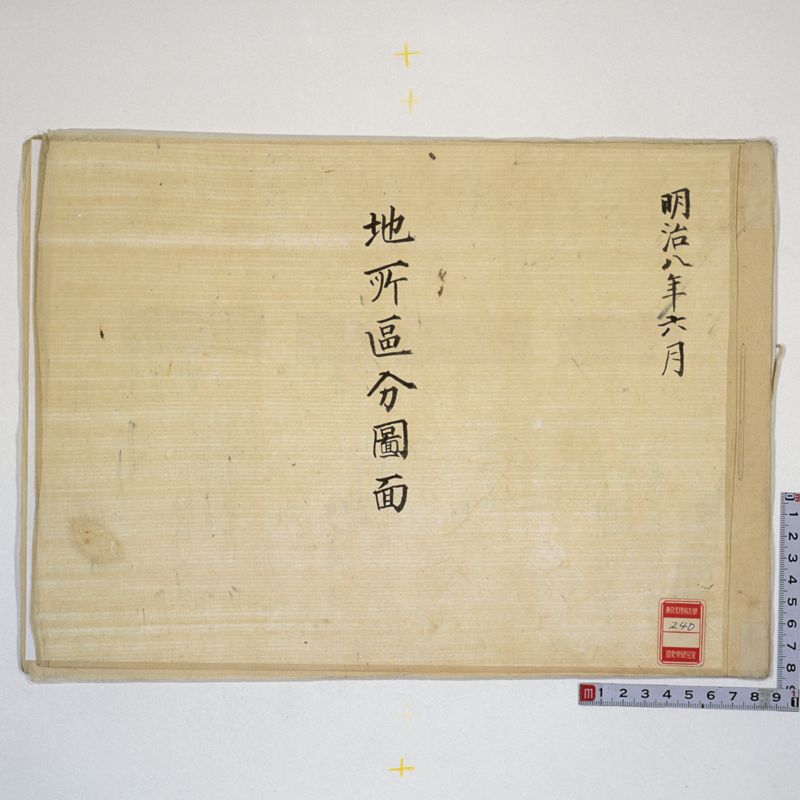 明治八年六月
地所區分圖面
東京文理科大學
240
國史學研究室
0 1 2 3 4 5 6 7 8 9
m 1 2 3 4 5 6 7 8 9